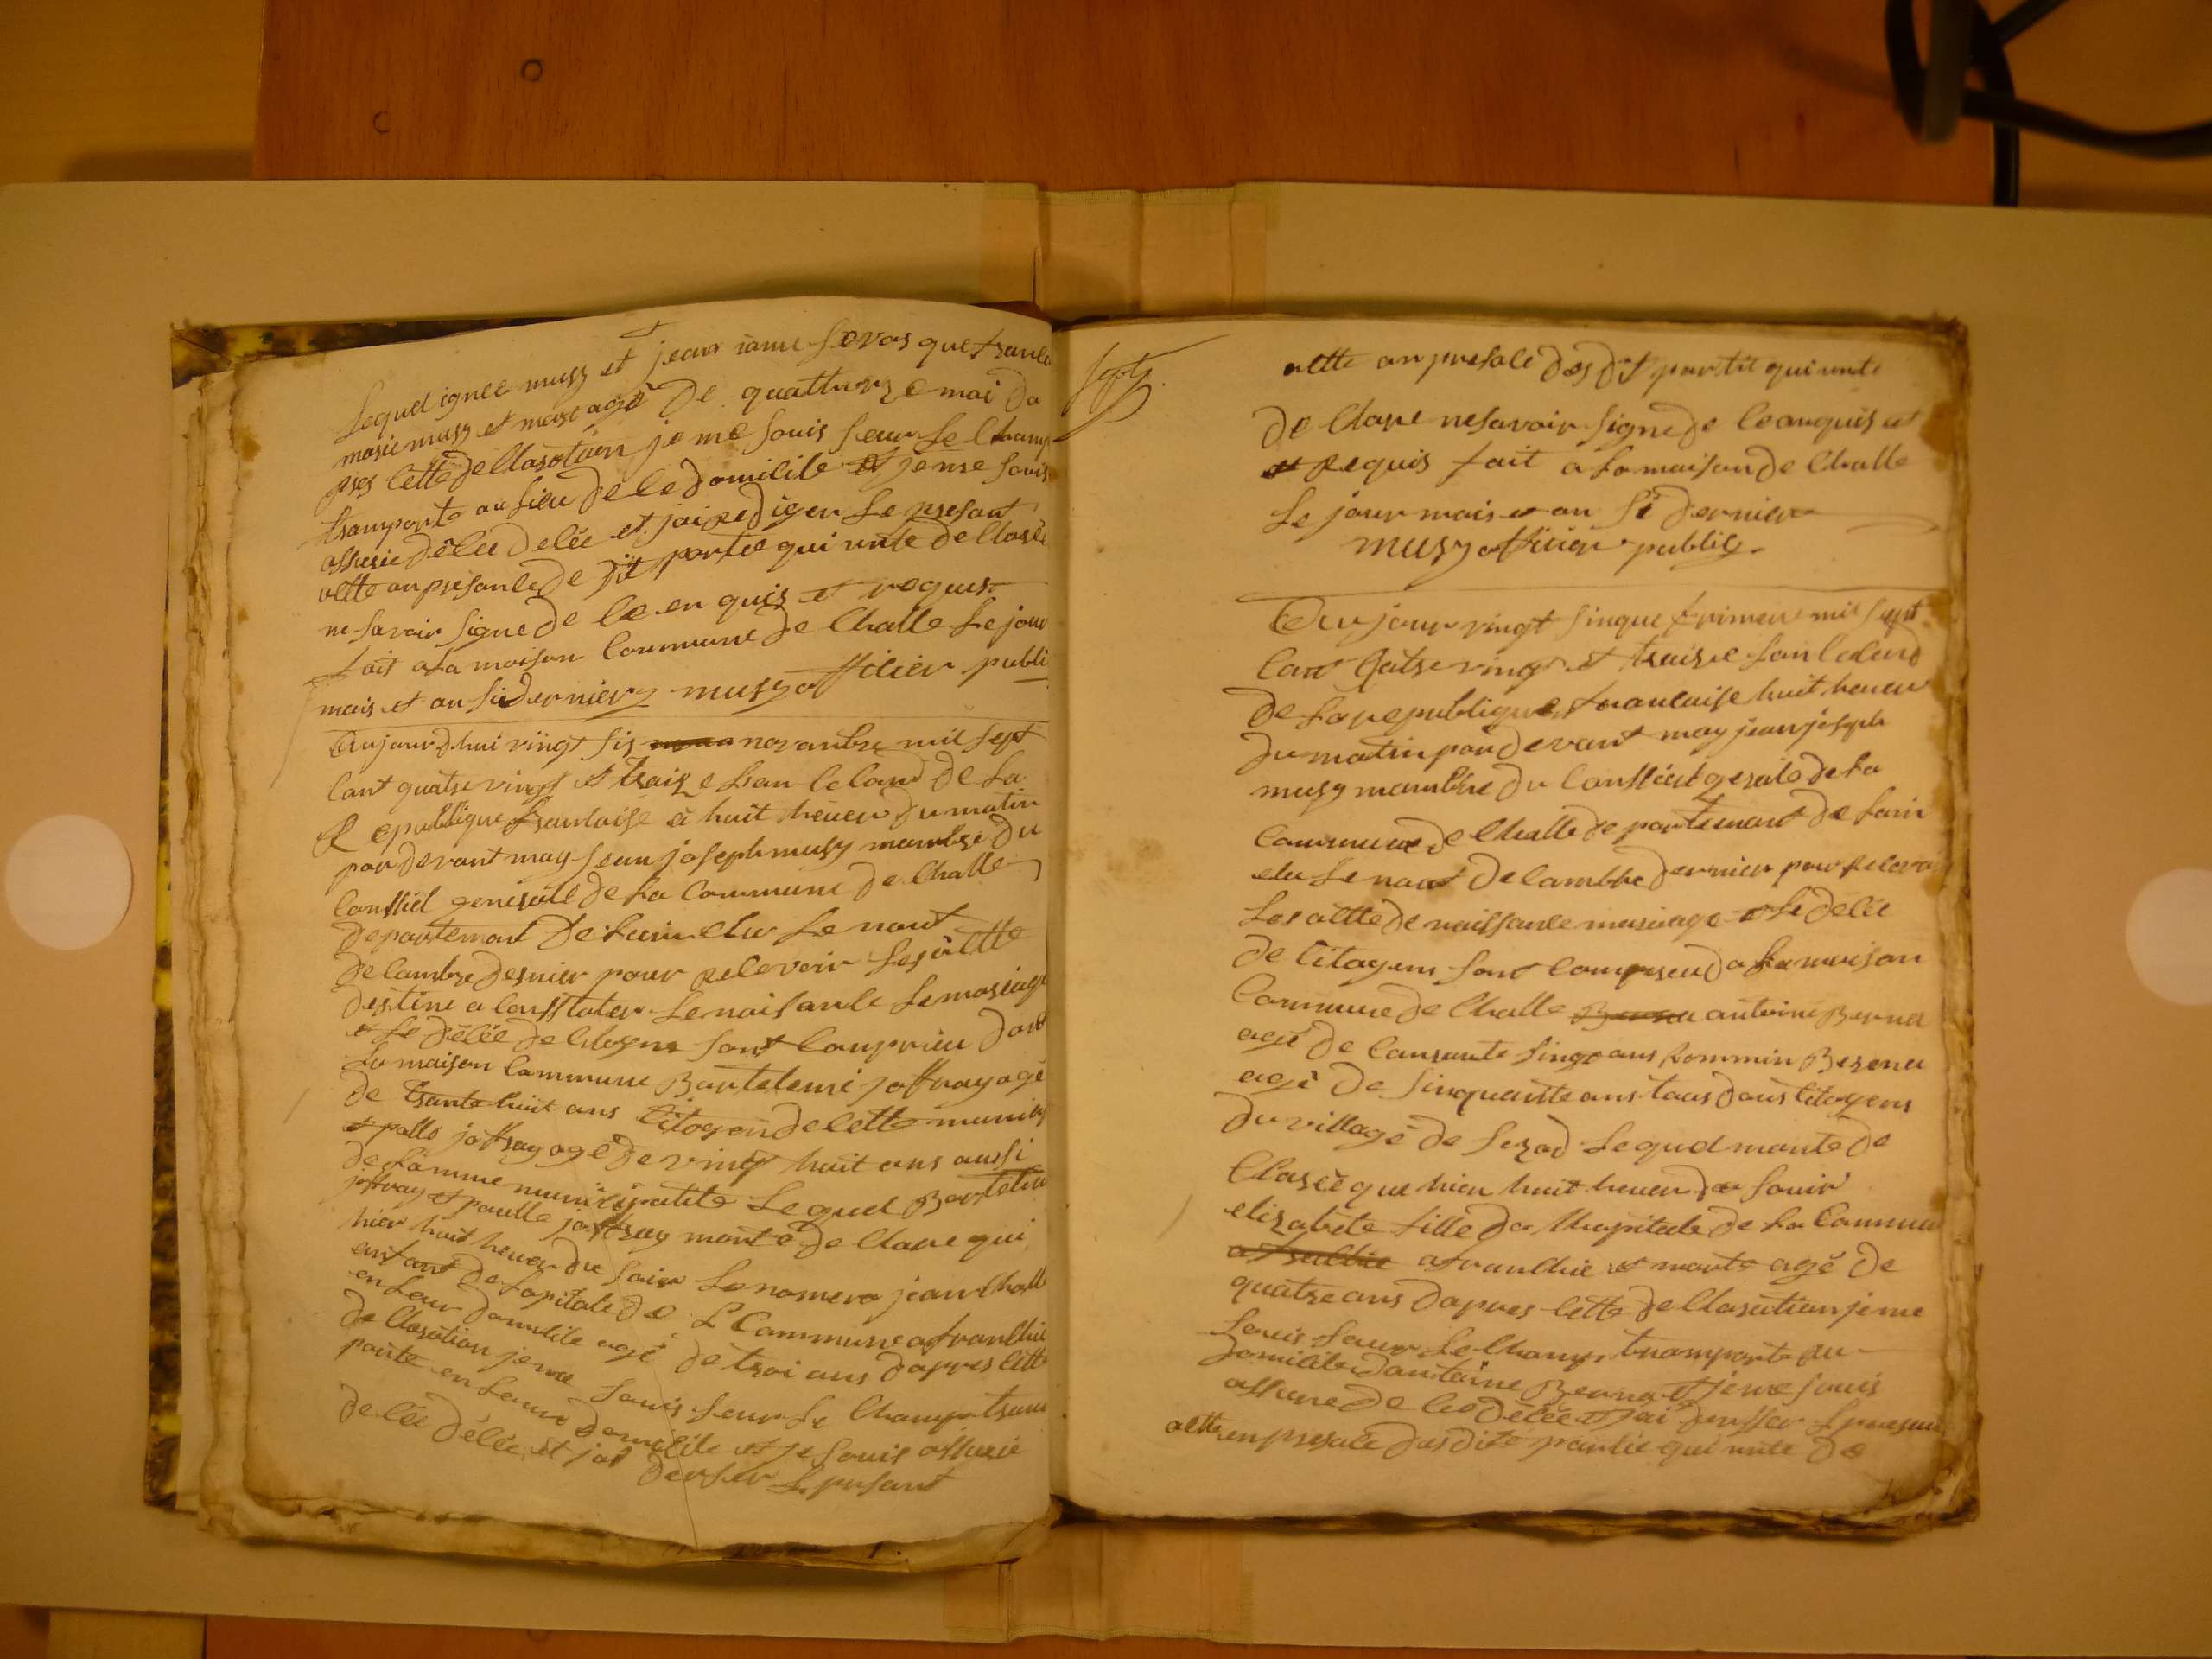 Lequel ignée musy et jean iame sovas quetrante
marie musy et mort agé de quatturze mai da
pres cette de Clarotïon je me souis seur le Champ
tramporte au lieu de le domicile et je me souis
assurie délée delée et jai rediger le presant
alte an presance de dit partie qui unte de Claré
ne savoir signe de ce en quis et requis
fait a la maison Commune de Challe le jour
mais et an si dernier musy offitier publi
Aujourdhui vingt sis novanbre mil sept
Cant quatre vingt et traize l'an Cecand de la
Republique fransaise à huit heuer du matin
par devant may jean joseph musy manbre du
Consliel generale de la Commune de Challe
departemant de lain elu le nant
decambre dernier pour recevoir les actte
destine a Consstater le naisance le mariage
et le délée de Citoyens sont Conprieu dant
la maison Commune Bartelemi joffray agé
de trante huit ans Citoyen de cette munisi
et pallo joffray agé de vingt huit ans aussi
de lamme munisipalite Lequel Bartelin
joffray et paulle joffray monté de Clare qui
hier huit heuer du soir Le nomero jean Chall
anfant de lopitale de L Commune afranllie
en leur domicile agé de troi ans dapres Cette
de Claration je me souis seur le Champ tram
porte en leure domicile et je souis assurie
de lée délée et jai dresser L presant
septs
altte an presale des dit partit qui unte
de Clare ne savoir signe de Ce anquis et
et Requis fait a la maison de Challe
Le jour mais et an si dernier
musy offitier public
Au jour vingt sinque frimere mil sept
Cant Qatre vingt et traize lan Cecand
de la republique francaise huit heuer
du matin par devant may jean joseph
musy manbre du Consliel gerale de la
Commune de Challe departemant de lain
elu le nant decambre dernier pour recevoir
Les actte de naissance mariage et le délée
de Citoyens sont Compreu da la maison
Commune de Challe antoine Berna
agé de Cansante singe ans Rommin Berena
agé de sinquante ans taus dous Citoyens
du village de Sezad Lequel mante de
Claréé que hier huit heuer du souir
elizabete fille da Lhopitale de la Commune
afranlhie et morte agé de
quatre ans dapres Cette de Claration je me
souis seur le Champ tramporte au
domicile dantoine Berna et je me souis
assure de les délée et jai dresser L presan
altte en presale des dite partie qui unte de